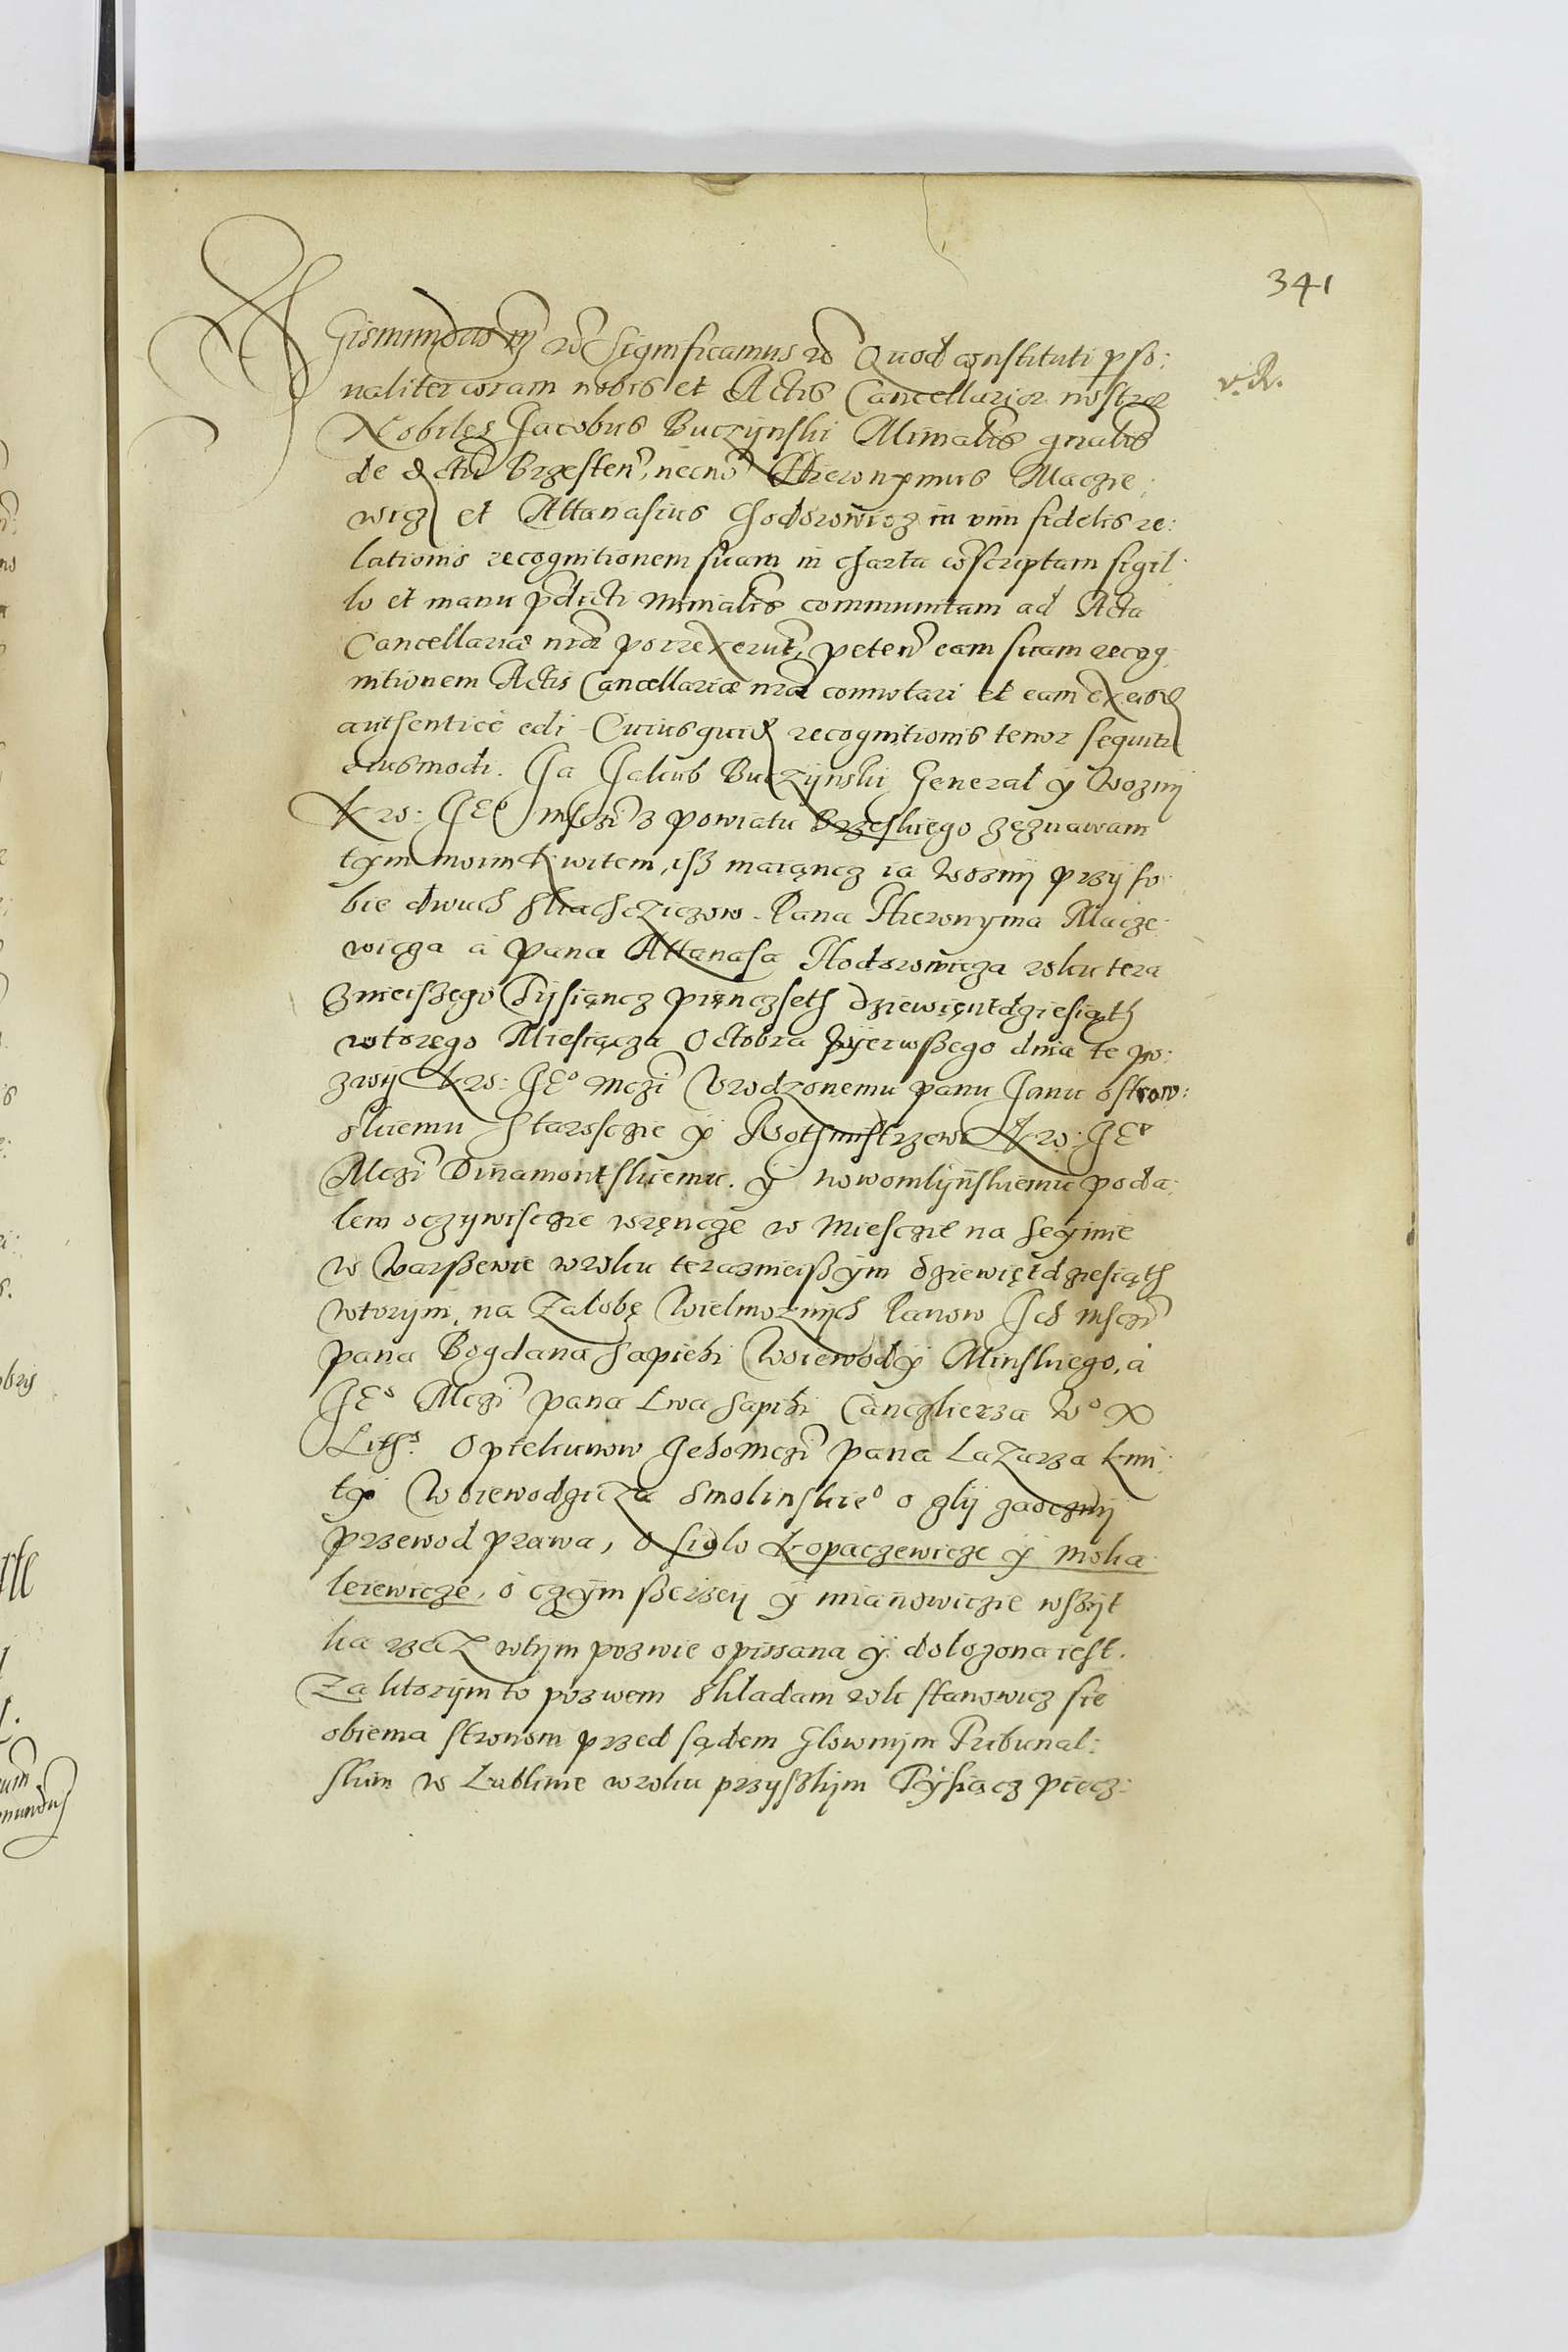 341
v. R.
Sigismundus III etc Significamus etc Quod constituti p̱so:
naliter coram nobis et Actis Cancellariae nostrae
Nobiles Jacobus Buczÿnski Minialis gnalis
de districtu Brzesten, necno Hieronymus Maczie:
wicz et Attanasius Chodorowicz in vim fidelis re:
lationis recognitionem suam in charta conscriptam sigil:
lo et manu pdicti Minialis communitam ad Acta
Cancellariae nrae porrexerut, peten eam suam recog
nitionem Actis Cancellariae nrae connotari et eam ex eisd
authentice edi Cuius quid recognitionis tenor sequitur
eiusmodi. Ja Jakub Buczÿnski General y Woznÿ
Kro: JEo msczi z powiatu Brzeskiego zeznawam
tym moim Kwitem, isz maiąncz ia Woznÿ przÿ so:
bie dwuch slachcziczow. Pana Hieronyma Macze:
wicza a pana Attanasa Hodorowicza roku tera
znieiszego Tÿsiąncz pięnczseth dziewięntdziesiąth
wtorego Miesiącza Octobra pÿerwszego dnia te po:
zwÿ Kro: JEo Mczi Urodzonemu panu Janu ostrow:
skiemu Starosczie y Rothmistrzewi Kro: JEo
Mczi Dinamontskiemu. ÿ nowomlÿnskiemu poda:
lem oczÿwisczie wręncze w Miesczie na Seÿmie
w Warszewie wroku teraznieiszÿm dziewiętdziesiąth
wtorÿm, na Zalobę Wielmoznÿch Panow Jch msczi
pana Bogdana Sapiehi Woiewodÿ Minskiego, a
JEo Mczi pana Lwa Sapihi Canczlierza Wo X
Litho. Opiekunow Jehomczi pana Lazarza Kmi:
tÿ Woiewodzicza Smolinskieo o zlÿ zaocznÿ
przewod prawa, o siolo Łopaczewicze y Moka
leiewicze, o czÿm szerzeÿ ÿ mianowiczie wszÿt
ka rzecz wtÿm pozwie opissana ÿ dolozona iest.
Za ktorÿm to pozwem skladam rok stanowicz sie
obiema stronom przed sądem Glownÿm Tribunal:
skim w Lublinie wroku przÿszlÿm Tÿsiącz piecz: